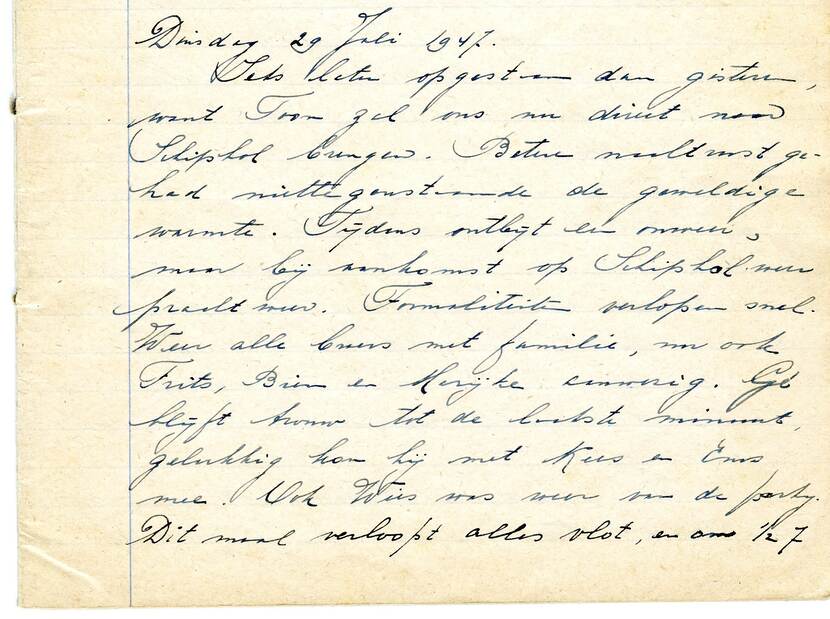 Dinsdag 29 Juli 1947.
Iets later opgestaan dan gisteren,
want Toon zal ons nu direct naar
Schiphol brengen. Betere nachtrust ge-
had niettegenstaande de geweldige
warmte. Tijdens ontbijt een onweer,
maar bij aankomst op Schiphol weer
pracht weer. Formaliteiten verlopen snel.
Weer alle broers met familie, nu ook
Frits, Bien en Marijke aanwezig. Gé
blijft trouw tot de laatste minuut,
gelukkig kan hij met Kees en Ems
mee. Ook Wies was weer van de party.
Dit maal verloopt alles vlot, en om ½ 7